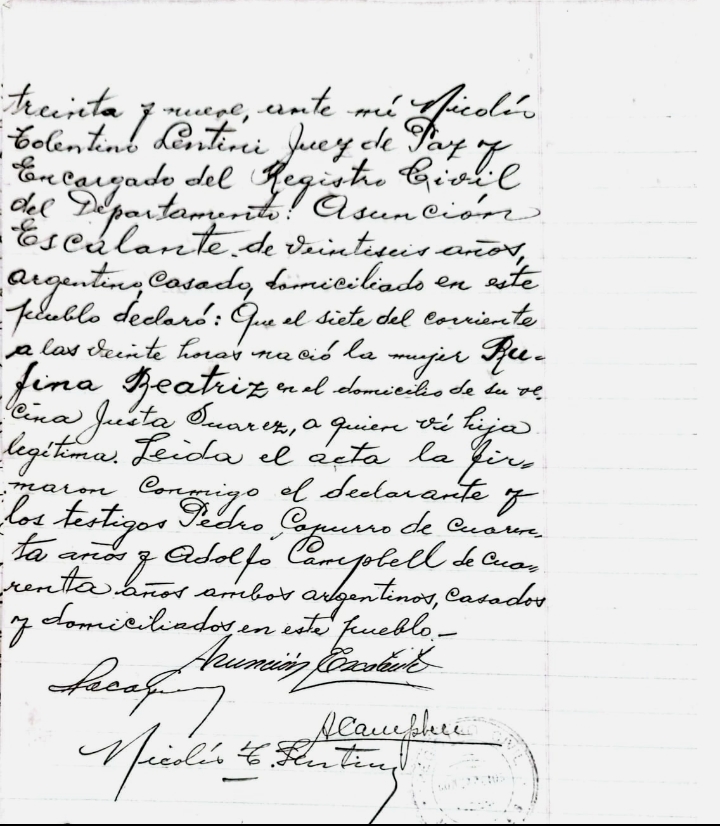 treinta y nueve, ante mí Nicolás
Tolentino Lentini Juez de Paz y
Encargado del Registro Civil
del Departamento: Asunción
Escalante de veintiseis años,
argentino, casado, domiciliado en este
pueblo declaró: Que el siete del corriente
a las veinte horas nació la mujer Ru-
fina Beatriz en el domicilio de su ve-
cina Justa Suarez, a quien vi hija
legítima. Leida el acta la fir-
maron conmigo el declarante y
los testigos Pedro Capurro de cuaren-
ta años y Adolfo Campbell de cua-
renta años ambos argentinos, casados
y domiciliados en este pueblo.—
Asunción Escalante
ACampbell
Nicolás T. Lentini